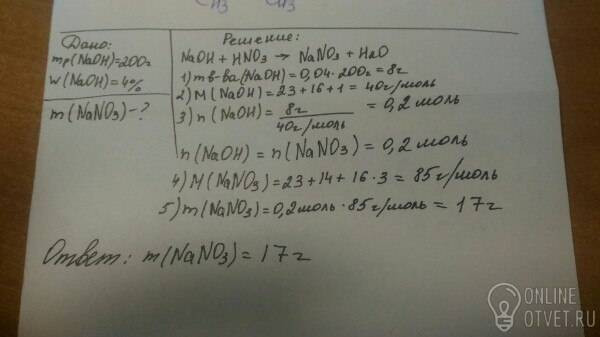 CH3 CH3
Дано:
mр(NaOH)=200г
w(NaOH)=4%
m(NaNO3)-?
Решение:
NaOH + HNO3 → NaNO3 + H2O
1) m в-ва(NaOH)=0,04·200г=8г
2) M(NaOH)=23+16+1=40г/моль
3) n(NaOH)=8г/40г/моль=0,2моль
n(NaOH)=n(NaNO3)=0,2моль
4) M(NaNO3)=23+14+16·3=85г/моль
5) m(NaNO3)=0,2моль·85г/моль=17г
Ответ: m(NaNO3)=17г
ONLINE
OTVET.RU